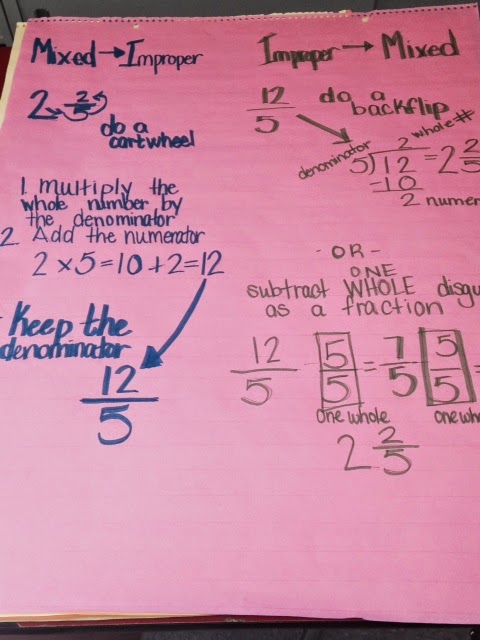 Mixed → Improper
2 2/5
do a
cartwheel
1. multiply the
whole number by
the denominator
2. Add the numerator
2 × 5 = 10 + 2 = 12
Keep the
denominator
12/5
Improper → Mixed
12/5 do a
backflip
whole #
denominator 2
5)12 = 2 2/5
=10
2 numer
- OR -
ONE
subtract WHOLE disgu
as a fraction
12/5 - 5/5 = 7/5 5/5 =
one whole one who
2 2/5